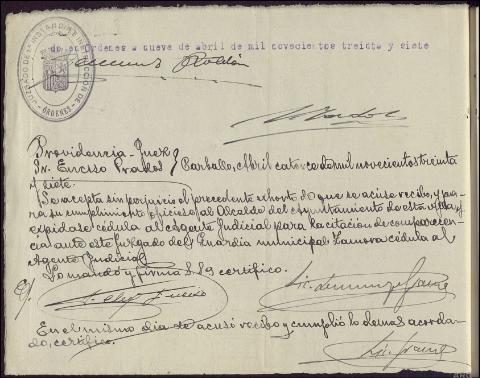 JUZGADO DE 1ª INSTANCIA E INSTRUCCION DE
ORDENES
do en Ordenes a nueve de abril de mil novecientos treinta y siete
Roldán
Providencia- Juez
Sr. Enciso Prados } Carballo, Abril catorce de mil novecientos treinta
y siete.
Se acepta sin perjuicio el precedente exhorto de que se acuse recibo, y pa-
ra su cumplimiento oficiese al Alcalde del ayuntamiento de esta villa, y
expidase cédula al Agente Judicial para la citación de comparecen-
cia ante este Juzgado del Guardia municipal Zamora cédula al
Agente Judicial
Lo mandó y firma S.Sª certifico.
E/
En el mismo dia se acusó recibo y cumplió lo demas acorda-
do, certifico.